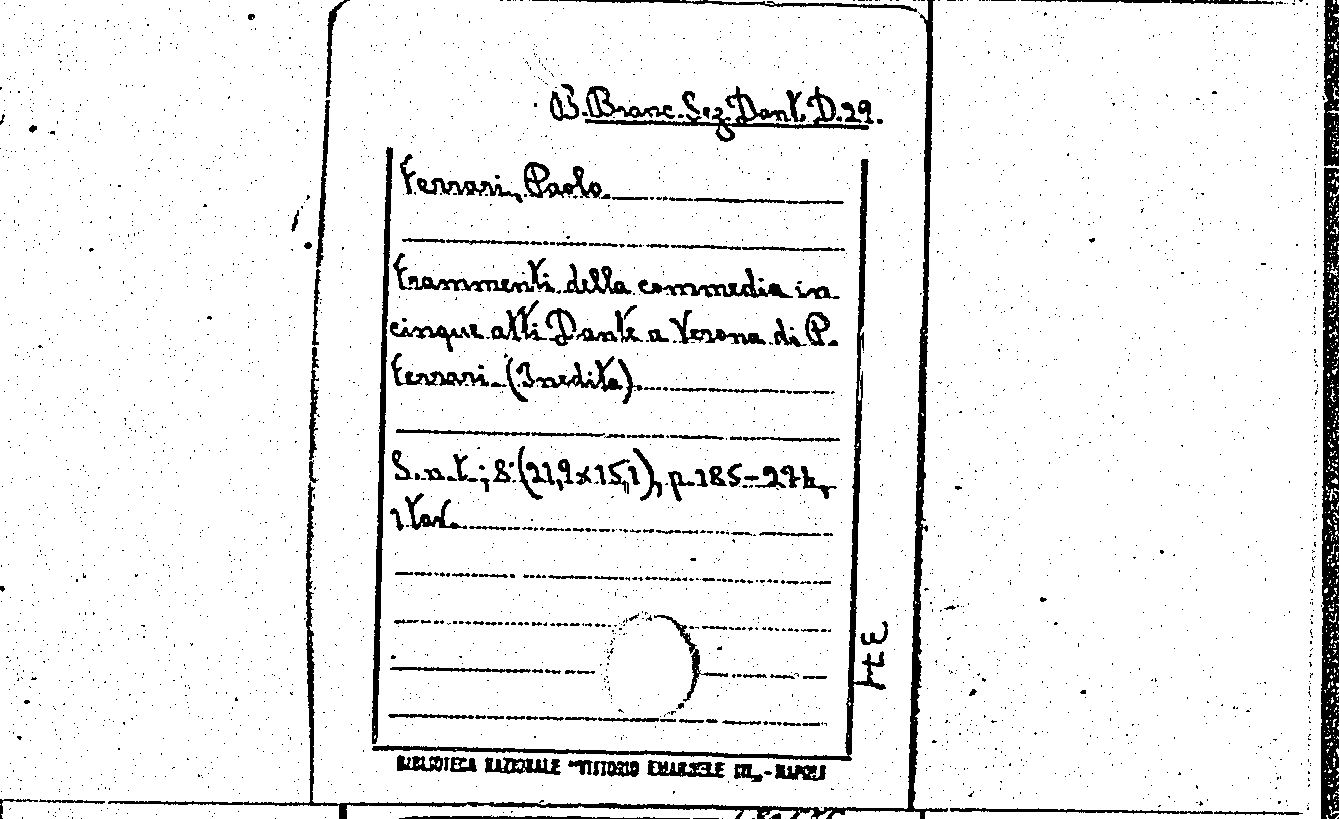 B. Branc. Sez. Dant. D. 29.
Ferrari, Paolo.
Frammenti della commedia in
cinque atti Dante a Verona di P.
Ferrari. (Inedita).
S. n. t.; 8.° (21,9x15,1), p. 185-274,
1 tav.
374
BIBLIOTECA NAZIONALE "VITTORIO EMANUELE III" - NAPOLI